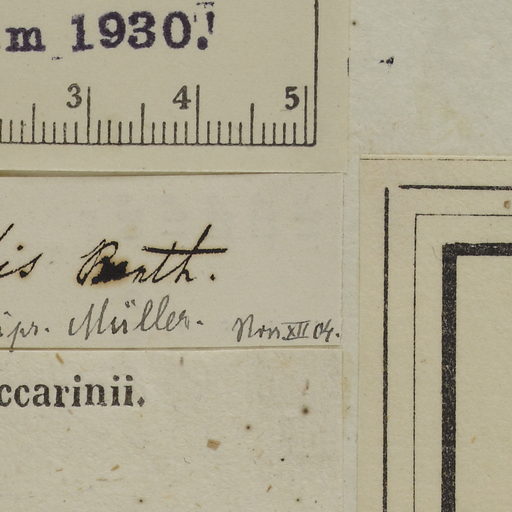 m 1930!
3 4 5
is Benth.
ipr. Müller. Nov. XII 04.
ccarinii.